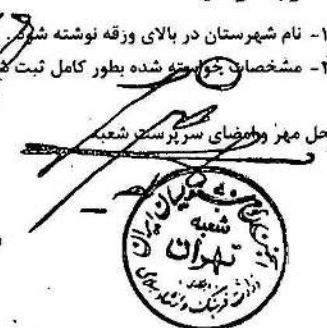 ۱- نام شهرستان در بالای ورقه نوشته شود.
۲- مشخصات خواسته شده بطور کامل ثبت
محل مهر و امضای سرپرست شعبه
شعبه
تهران
وزارت فرهنگ و ارشاد اسلامی